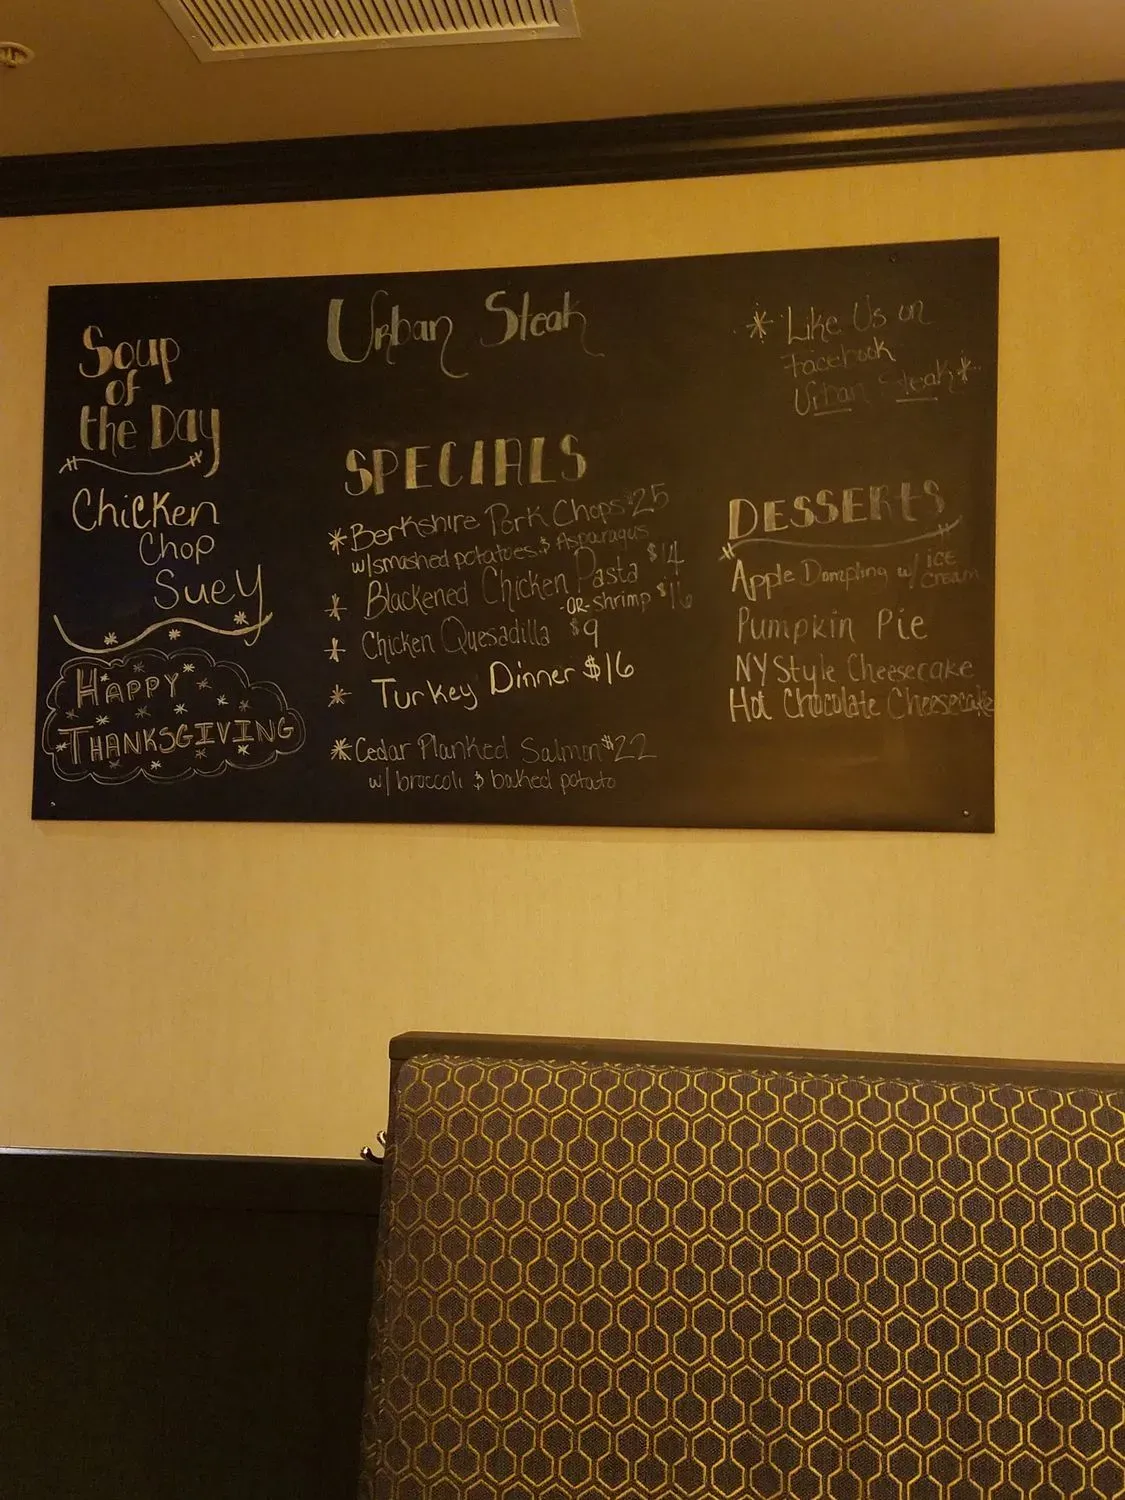 Urban Steak
Soup
of
the Day
Chicken
Chop
Suey
HAPPY
THANKSGIVING
SPECIALS
*Berkshire Pork Chops $25
w/smashed potatoes & Asparagus
* Blackened Chicken Pasta $14
-OR- shrimp $16
* Chicken Quesadilla $9
* Turkey Dinner $16
*Cedar Planked Salmon $22
w/ broccoli & baked potato
* Like Us on
Facebook
Urban Steak *
DESSERTS
Apple Dumpling w/ ice
cream
Pumpkin Pie
NY Style Cheesecake
Hot Chocolate Cheesecake